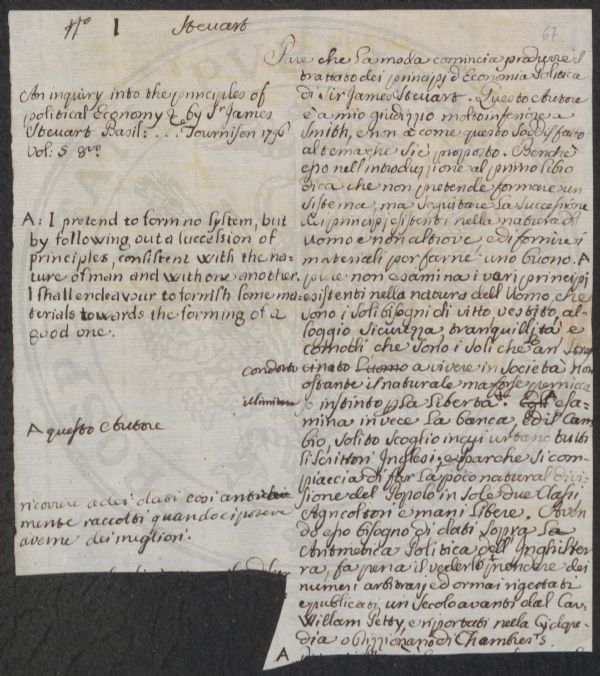 No 1 Steuart
67
An inquiry into the principles of
political Economy &. by Sr James
Steuart Basil: ... Tournisen 1796
Vol: 5 8vo
A: I pretend to form no system, but
by following out a succession of
principles, consistent with the na-
ture of man and with one another.
I shall endeavour to fornish some ma-
terials towards the forming of a
good one.
condotti
illimitata
A questo Autore
ricorrere a dei dati così antica
mente raccolti quando ci poteva
averne dei migliori.
Pare che la moda comincia produrre il
trattato dei principj d'Economia Politica
di Sir James Steuart. Questo Autore
è a mio giudizio molto inferiore a
Smith, e non à come questo soddisfatto
al tema che si è proposto. Benchè
epo nell'introduzione al primo libro
dica che non pretende formare un
sistema, ma seguitare la successione
dei principj esistenti nella natura dell
Uomo e non altrove, e di fornire i
materiali per farne uno buono. A
pure non esamina i veri principj
esistenti nella natura dell Uomo, che
sono i soli bisogni di vitto vestito, al-
loggio sicurezza tranquillità e
comodi che sono i soli che an
a vivere in Società non
ostante il naturale ma forse
instinto p la Libertà. A esa-
mina invece la banca, ed il Cam
bio, solito scoglio in cui urtano tutti
li scrittori Inglesi, e pare che si com-
piaccia di far la poco natural divi-
sione del Popolo in sole due Classi
Agricoltori e mani Libere. Aven
do epo bisogno di dati sopra la
Aritmetica Politica dell'Inghilter
ra, fa pena il vederlo prendere dei
numeri arbitrarj ed ormai rigettati
e publicati un secolo avanti dal Cav.
Willam Petty, e riportati nella Ciclope-
dia o Dizzionario di Chambers.
A